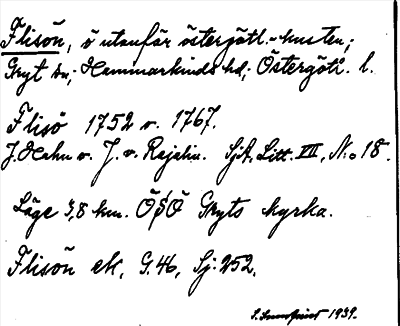 Flisön, ö utanför östergötl.-kusten;
Gryt sn; Hammarkinds hd; Östergötl. l.
Flisö 1752 v. 1767.
J. Hahn v. J. v. Rajalin. SjA, Litt. VII, No 18.
Läge 3,8 km. ÖSÖ Gryts kyrka.
Flisön ek, G. 46, Sj: 252.
1939.